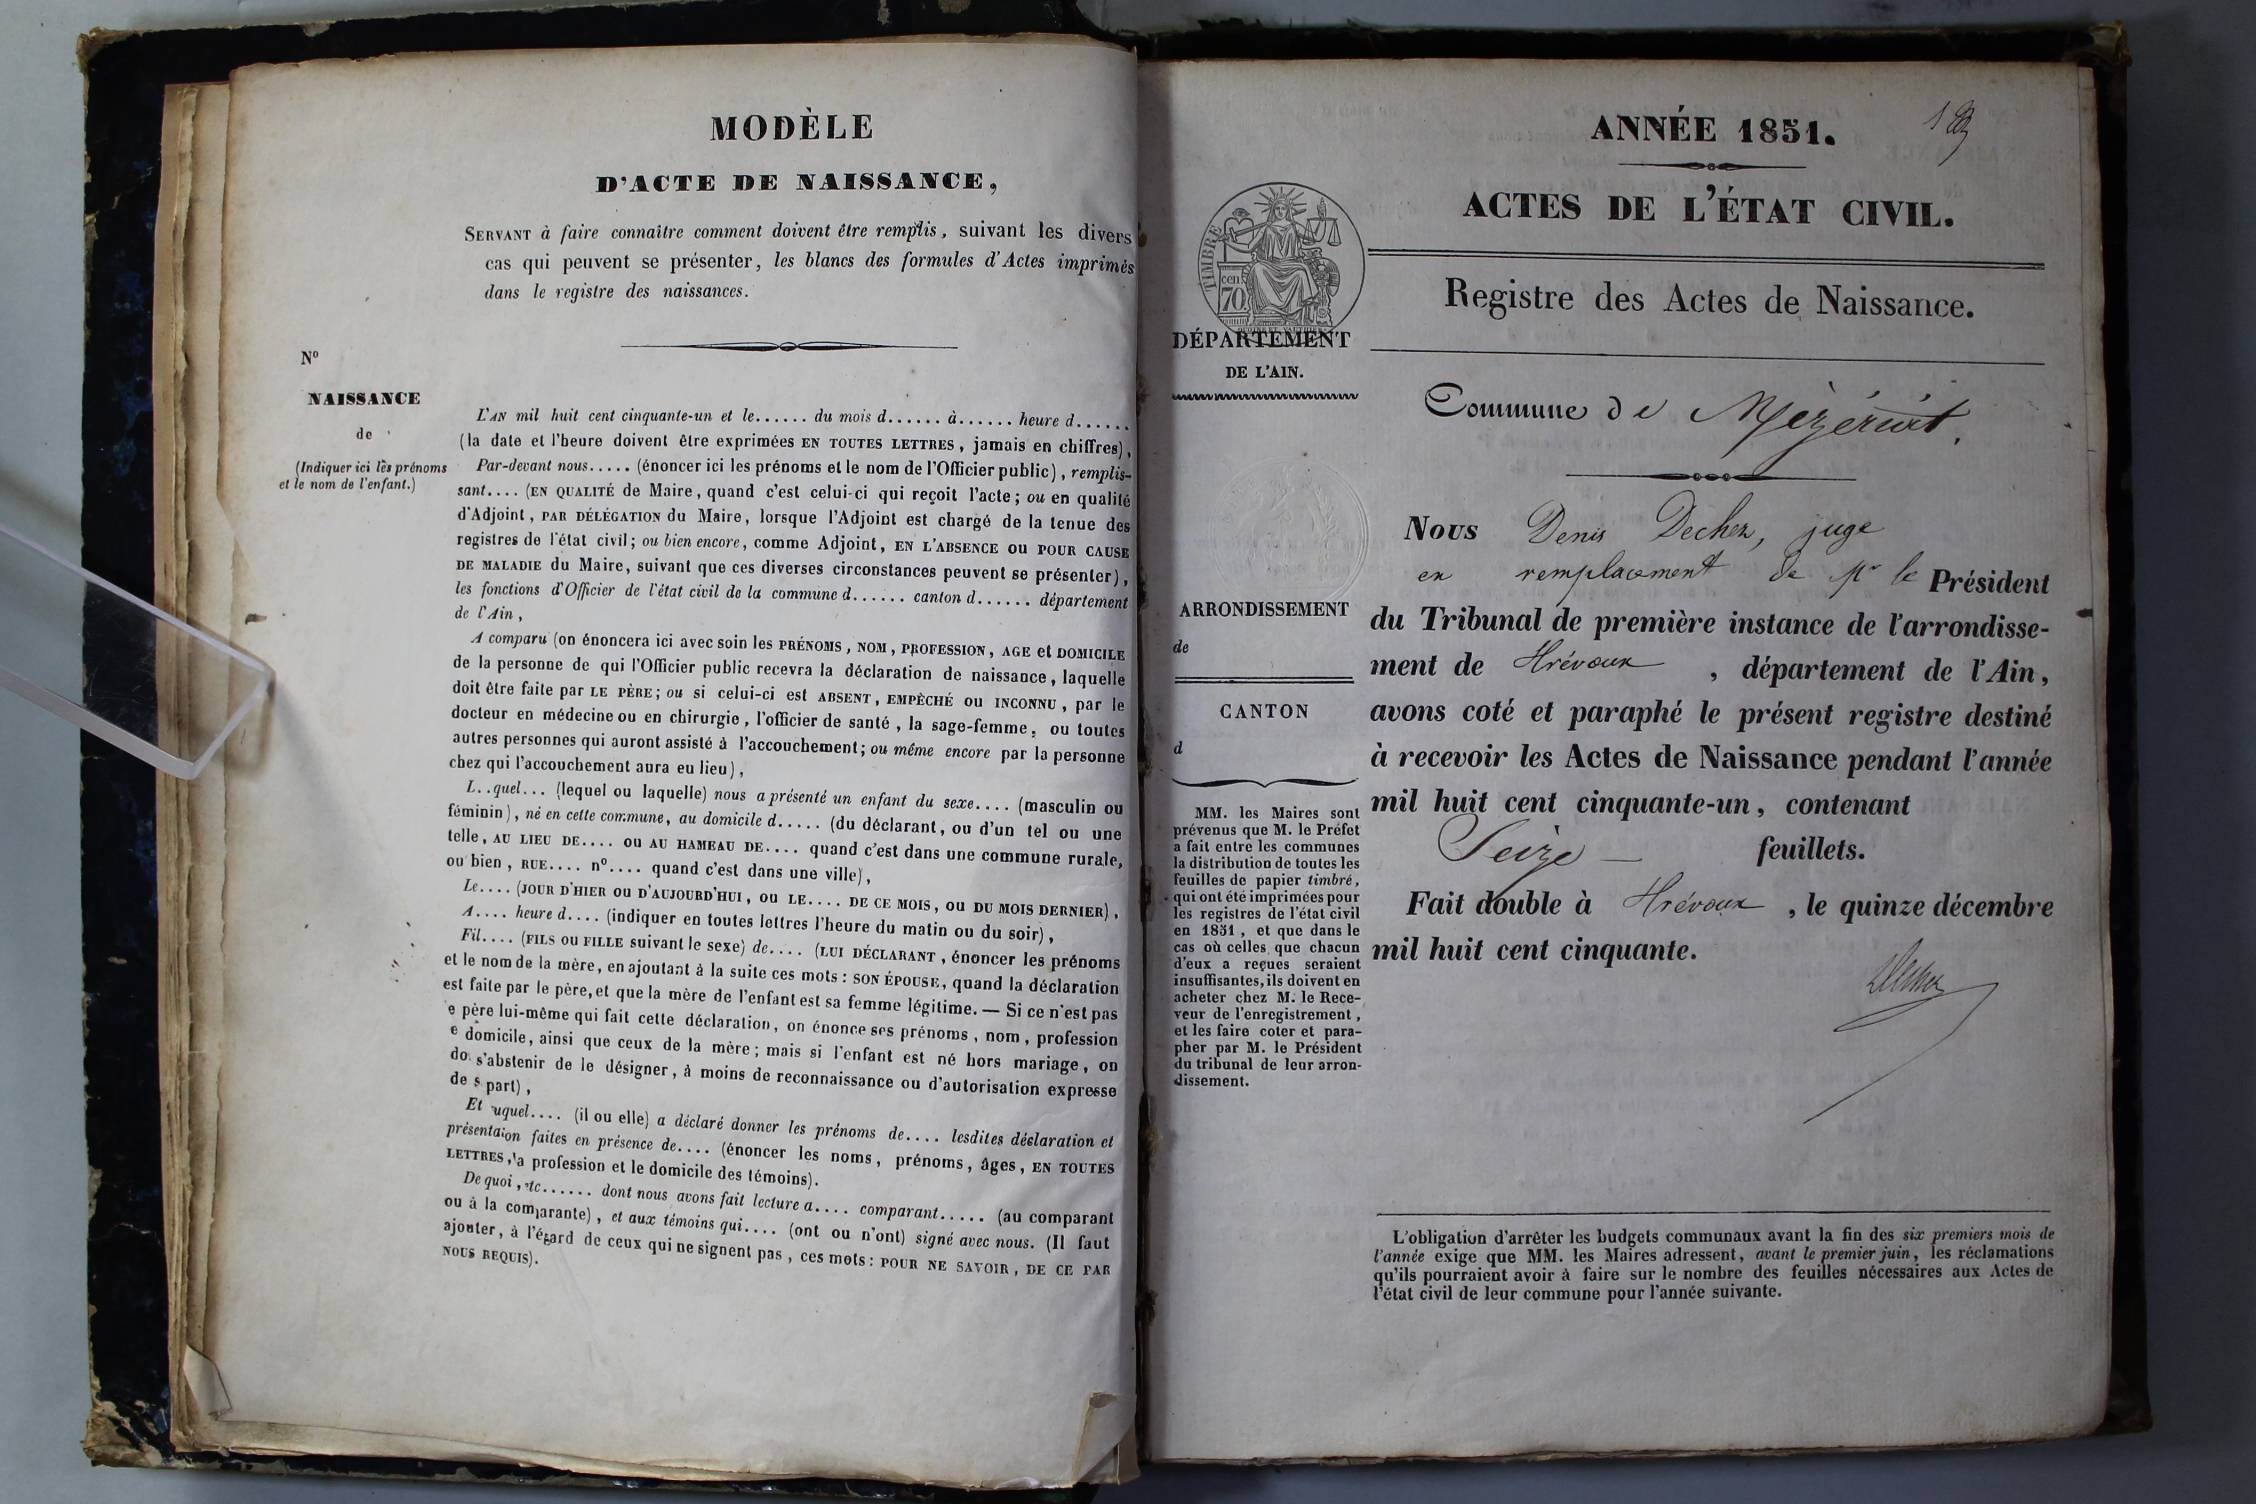 MODÈLE
D'ACTE DE NAISSANCE,
SERVANT à faire connaître comment doivent être remplis, suivant les divers
cas qui peuvent se présenter, les blancs des formules d'Actes imprimés
dans le registre des naissances.
No
NAISSANCE
de
(Indiquer ici les prénoms
et le nom de l'enfant.)
L'AN mil huit cent cinquante-un et le...... du mois d...... à...... heure d......
(la date et l'heure doivent être exprimées EN TOUTES LETTRES, jamais en chiffres),
Par-devant nous..... (énoncer ici les prénoms et le nom de l'Officier public), remplis-
sant.... (EN QUALITÉ de Maire, quand c'est celui-ci qui reçoit l'acte; ou en qualité
d'Adjoint, PAR DÉLÉGATION du Maire, lorsque l'Adjoint est chargé de la tenue des
registres de l'état civil; ou bien encore, comme Adjoint, EN L'ABSENCE OU POUR CAUSE
DE MALADIE du Maire, suivant que ces diverses circonstances peuvent se présenter),
les fonctions d'Officier de l'état civil de la commune d...... canton d...... département
de l'Ain,
A comparu (on énoncera ici avec soin les PRÉNOMS, NOM, PROFESSION, AGE et DOMICILE
de la personne de qui l'Officier public recevra la déclaration de naissance, laquelle
doit être faite par LE PÈRE; ou si celui-ci est ABSENT, EMPÈCHÉ OU INCONNU, par le
docteur en médecine ou en chirurgie, l'officier de santé, la sage-femme, ou toutes
autres personnes qui auront assisté à l'accouchement; ou même encore par la personne
chez qui l'accouchement aura eu lieu),
L..quel... (lequel ou laquelle) nous a présenté un enfant du sexe.... (masculin ou
féminin), né en cette commune, au domicile d..... (du déclarant, ou d'un tel ou une
telle, AU LIEU DE.... OU AU HAMEAU DE.... quand c'est dans une commune rurale,
ou bien, RUE.... no.... quand c'est dans une ville),
Le.... (JOUR D'HIER OU D'AUJOURD'HUI, OU LE.... DE CE MOIS, OU DU MOIS DERNIER),
A.... heure d.... (indiquer en toutes lettres l'heure du matin ou du soir),
Fil.... (FILS OU FILLE suivant le sexe) de.... (LUI DÉCLARANT, énoncer les prénoms
et le nom de la mère, en ajoutant à la suite ces mots: SON ÉPOUSE, quand la déclaration
est faite par le père, et que la mère de l'enfant est sa femme légitime. — Si ce n'est pas
e père lui-même qui fait cette déclaration, on énonce ses prénoms, nom, profession
e domicile, ainsi que ceux de la mère; mais si l'enfant est né hors mariage, on
do. s'abstenir de le désigner, à moins de reconnaissance ou d'autorisation expresse
de s part),
Et uquel.... (il ou elle) a déclaré donner les prénoms de.... lesdites déclaration et
présentaion faites en présence de.... (énoncer les noms, prénoms, âges, EN TOUTES
LETTRES, a profession et le domicile des témoins).
De quoi, etc...... dont nous avons fait lecture a.... comparant..... (au comparant
ou à la comparante), et aux témoins qui.... (ont ou n'ont) signé avec nous. (Il faut
ajouter, à l'égard de ceux qui ne signent pas, ces mots: POUR NE SAVOIR, DE CE PAR
NOUS REQUIS).
ANNÉE 1851.
ACTES DE L'ÉTAT CIVIL.
TIMBRE
cen.
70
Registre des Actes de Naissance.
DÉPARTEMENT
DE L'AIN.
Commune de Mézériat.
Nous Denis Dechez, juge
en remplacement de Mr le Président
du Tribunal de première instance de l'arrondisse-
ment de Trévoux, département de l'Ain,
avons coté et paraphé le présent registre destiné
à recevoir les Actes de Naissance pendant l'année
mil huit cent cinquante-un, contenant
Seize feuillets.
Fait double à Trévoux, le quinze décembre
mil huit cent cinquante.
Dechez
ARRONDISSEMENT
de
CANTON
d
MM. les Maires sont
prévenus que M. le Préfet
a fait entre les communes
la distribution de toutes les
feuilles de papier timbré,
qui ont été imprimées pour
les registres de l'état civil
en 1851, et que dans le
cas où celles que chacun
d'eux a reçues seraient
insuffisantes, ils doivent en
acheter chez M. le Rece-
veur de l'enregistrement,
et les faire coter et para-
pher par M. le Président
du tribunal de leur arron-
dissement.
L'obligation d'arrêter les budgets communaux avant la fin des six premiers mois de
l'année exige que MM. les Maires adressent, avant le premier juin, les réclamations
qu'ils pourraient avoir à faire sur le nombre des feuilles nécessaires aux Actes de
l'état civil de leur commune pour l'année suivante.